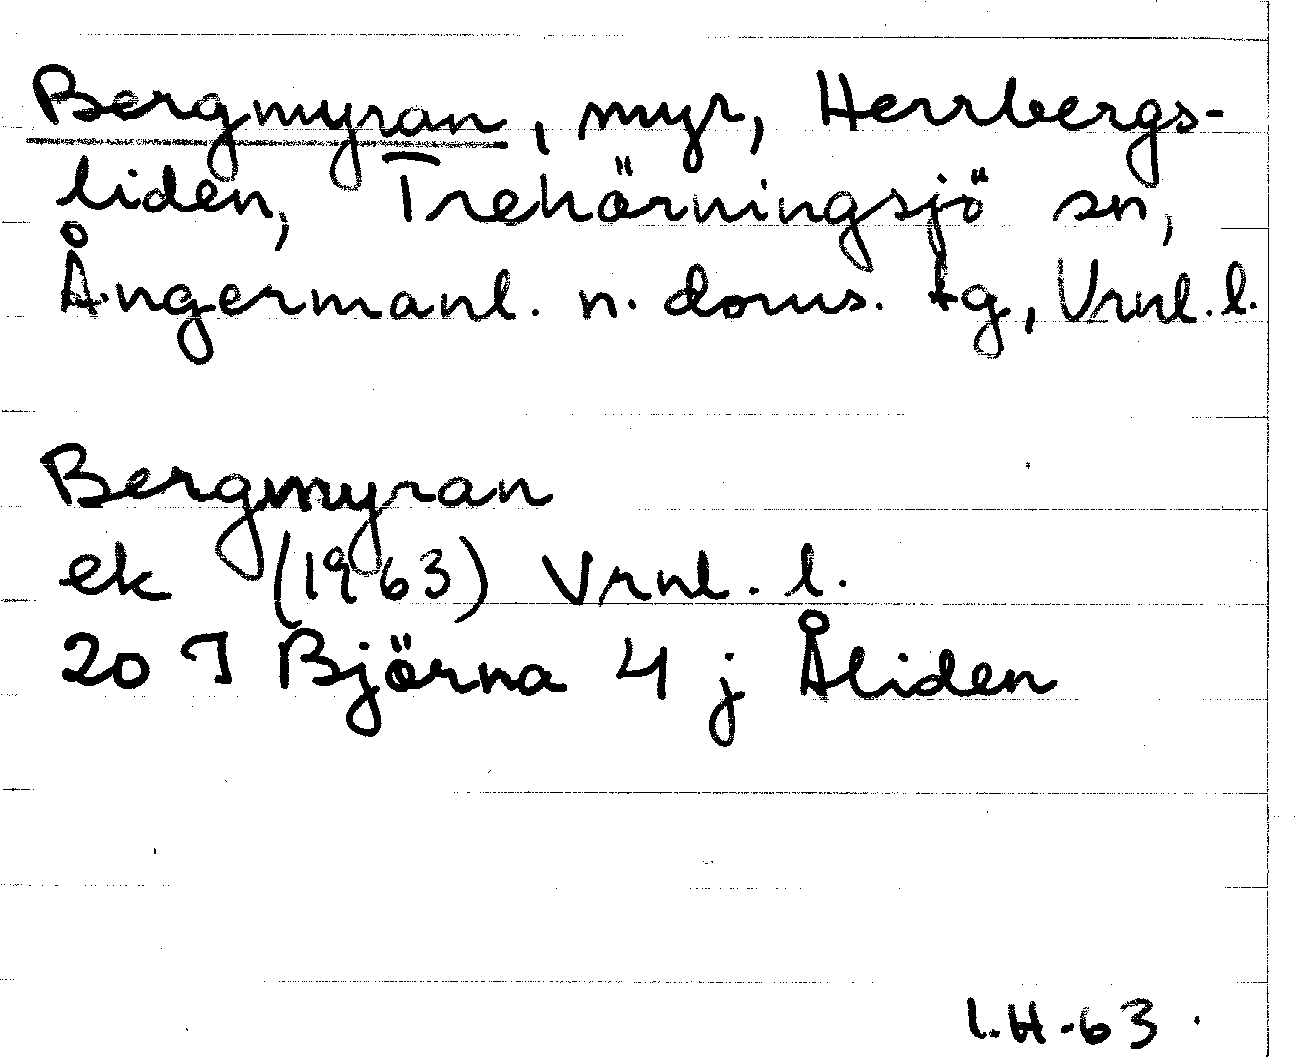 Bergmyran, myr, Herrbergs-
liden, Trehörningsjö sn,
Ångermanl. n. doms. tg, Vrnl. l.
Bergmyran
ek (1963) Vrnl. l.
20 J Björna 4 j Åliden
I.H.-63.